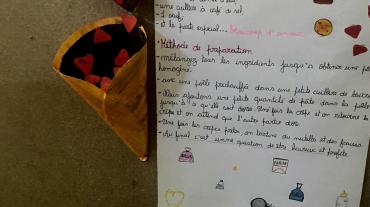 - une cuillère à café de sel,
- 1 oeuf,
- et la partie spécial... beaucoup d'amour
• Méthode de préparation
- mélangez tous les ingrédients jusqu'à obtenir une pâte
homogène.
- avec une poêle préchauffé dans une petite cuillère de beurre
- Nous ajoutons une petite quantité de pâte dans la poêle
jusqu'à ce qu'elle soit dorée. Une fois la crêpe est on retourne la
crêpe et on attend que l'autre partie dore.
- Une fois les crêpes prêtes, on tartine du nutella et des fraises
- Au final, c'est une question de être heureux et profite.